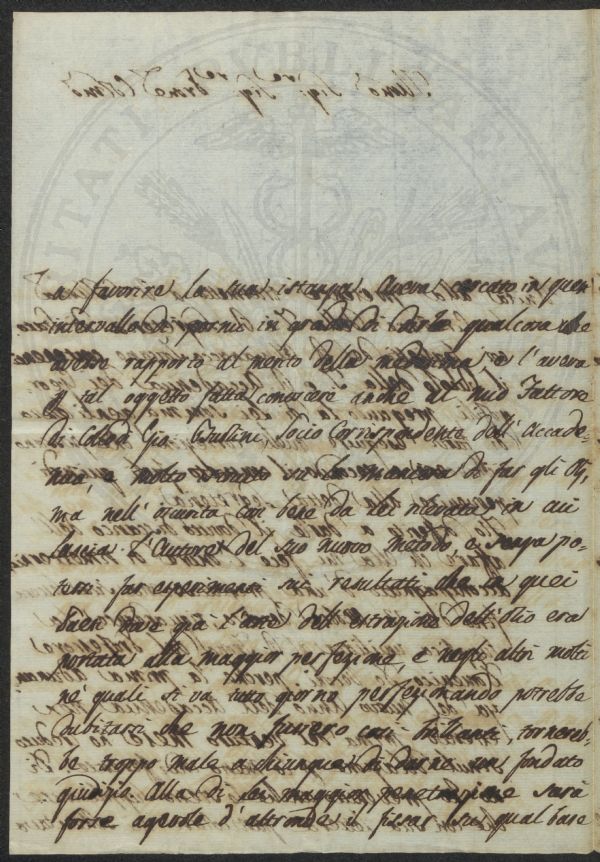 a favorire la sua istanza. Aveva cercato in quest'
intervallo di pormi in grado di darle qualcosa che
avesse rapporto al merito della medesima e l'aveva
p tal oggetto fatta conoscere anche al mio Fattore
di Gio. Socio Corrispondente dell'Accade-
mia, e molto versato su la maniera di far gli Olj,
ma nell'oscurità così bene da lei rilevata, in cui
lascia l'Autore del suo nuovo metodo, e senza po-
tersi far esperimenti sui resultati che in quei
Paesi dove già l'arte dell'estrazione dell'Olio era
portata alla maggior perfezione, e negli altri molti
ne' quali si va tutto giorno perfezionando potrebbe
dubitarsi che non fussero così brillanti, tornereb-
be troppo male a chiunque di darne un fondato
giudizio. Alla di lei maggior penetrazione sarà
forse agevole d'altronde il fissar su qual base